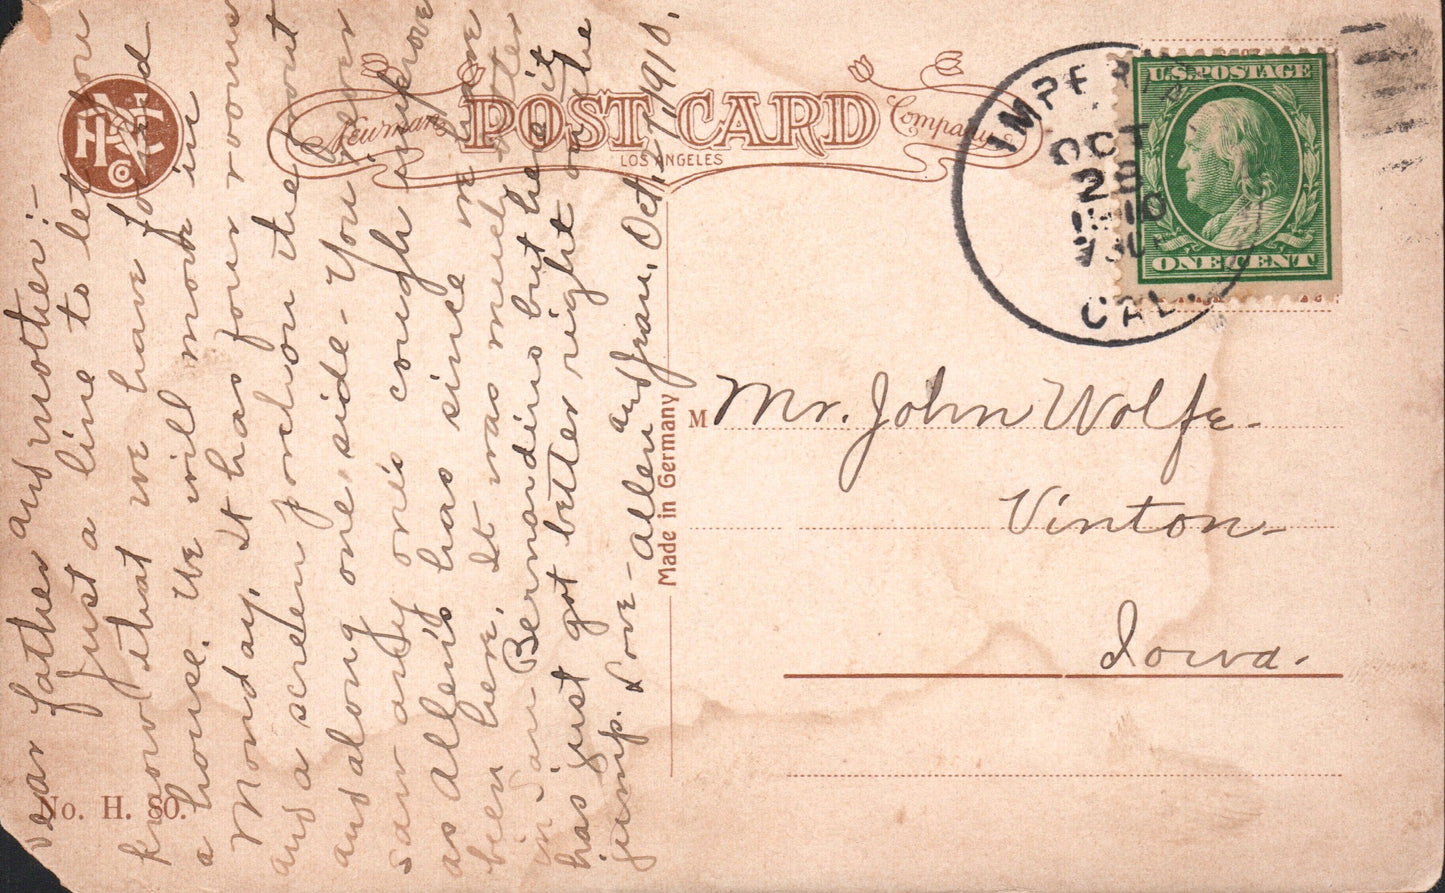 Dear father and mother:-
Just a line to let you
know that we have found
a house. We will move in
Monday. It has four rooms
and a screen porch on the front
and along one side. You never
saw any one's cough improve
as Allen's has since we have
been here. It was much better
in San Bernardino but here it
has just got better right on the
jump. Love - Allen and Gran. Oct. 27, 1910.
HNPC Co
Newman POST CARD Company
LOS ANGELES
Made in Germany
No. H. 80.
IMPERIAL
OCT
28
1910
CAL.
U.S. POSTAGE
ONE CENT
M Mr. John Wolfe.
Vinton
Iowa.